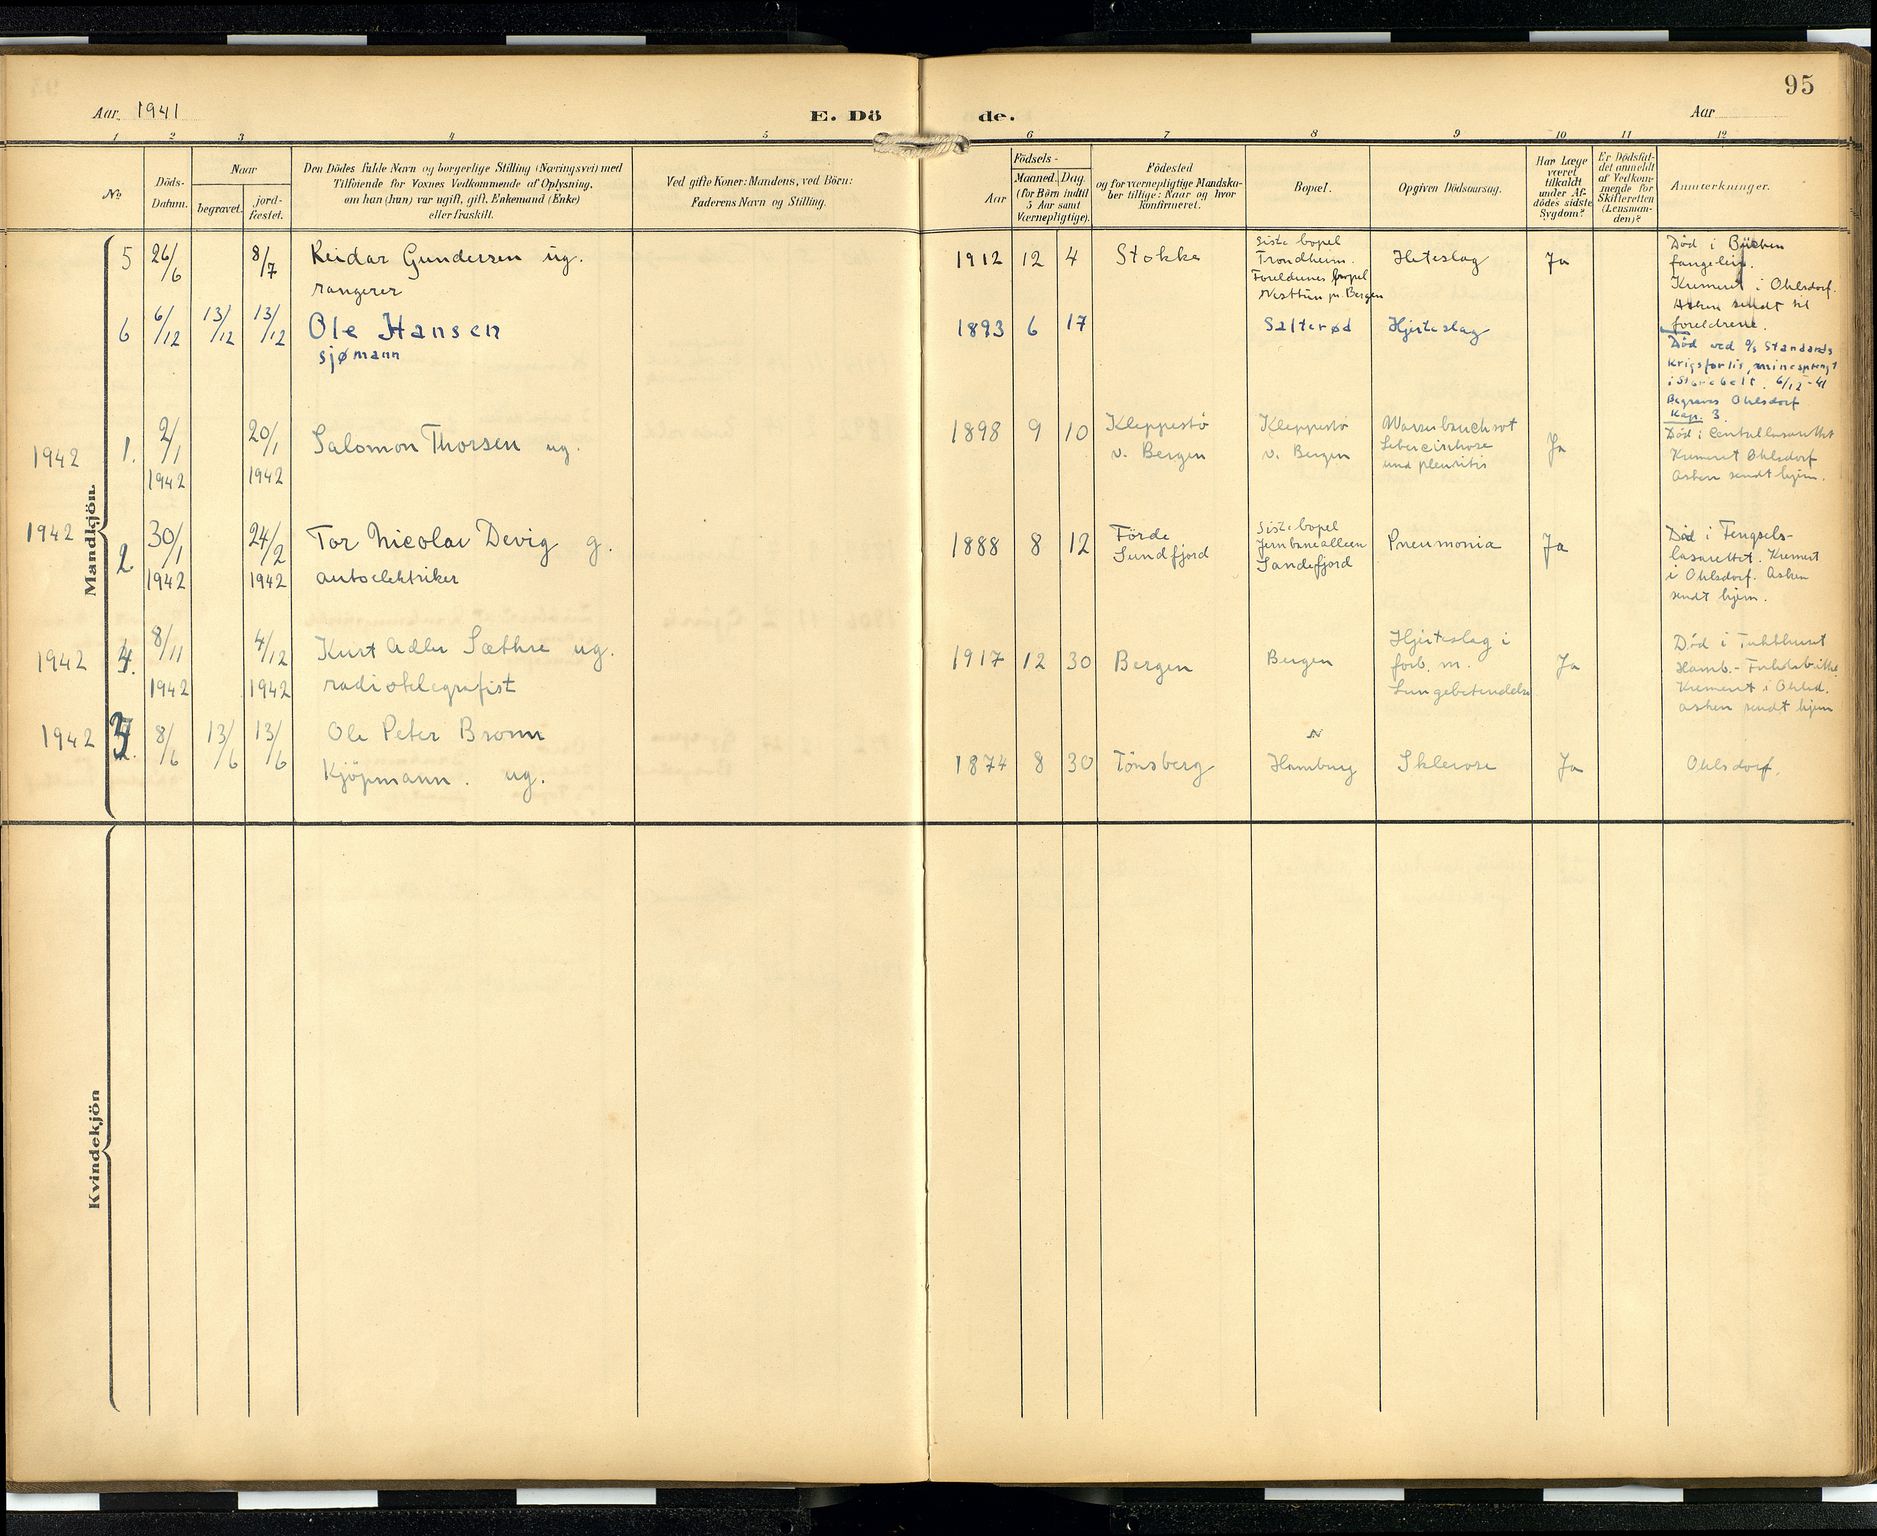 95
Aar 1941
E. Dö
de.
Aar
1 2 3 4 5 6 7 8 9 10 11 12
No
Döds-
Datum.
Naar
begravet.
jord-
fæstet.
Den Dödes fulde Navn og borgerlige Stilling (Næringsvei) med
Tilföiende for Voxnes Vedkommende af Oplysning,
om han (hun) var ugift, gift, Enkemand (Enke)
eller fraskilt.
Ved gifte Koner: Mandens, ved Börn:
Faderens Navn og Stilling.
Födsels-
Aar
Maaned. Dag
(for Börn indtil
5 Aar samt
Værnepligtige).
Födested
og for værnepligtige Mandska-
ber tillige: Naar og hvor
konfirmeret.
Bopæl.
Opgiven Dödsaarsag.
Har Læge
været
tilkaldt
under Af-
dödes sidste
Sygdom?
Er Dödsfal-
det anmeldt
af Vedkom-
mende for
Skifteretten
(Lensman-
den)?
Anmærkninger.
Mandkjön.
5 26/6 8/7 Reidar Gundersen ug.
rangerer
1912 12 4 Stokke
Siste bopel
Trondheim.
Foreldrenes bopel
Nesttun pr. Bergen
Hjerteslag
Ja
Død i Büchen
fangeleir.
Kremert i Ohlsdorf.
Asken sendt til
foreldrene.
6 6/12 13/12 13/12 Ole Hansen
sjømann
1893 6 17 Salterød Hjerteslag
Død ved D/S Standards
krigsforlis, minesprengt
i Storebelt. 6/12-41
Begraves Ohlsdorf
Kap. 3
1942 1. 2/1 1942 20/1 1942 Salomon Thorsen ug.
1898 9 10 Kleppestø
v. Bergen
Kleppestø
v. Bergen
Wasserbauchsot
Lebercirrhose
und pleuritis
Ja
Død i Centrallasarettet
Kremert Ohlsdorf
Asken sendt hjem.
1942 2. 30/1 1942 24/2 1942 Tor Nicolai Devig g.
autoelektriker
1888 8 12 Förde
Sundfjord
Siste bopel
Jernbanealleen
Sandefjord
Pneumonia
Ja
Død i Fengsels-
lasarettet. Kremert
i Ohlsdorf. Asken
sendt hjem.
1942 4. 8/11 1942 4/12 1942 Kurt Adler Sæthre ug.
radiotelegrafist
1917 12 30 Bergen Bergen
Hjerteslag i
forb. m.
Lungebetendelse
Ja
Død i Tukthuset
Hamb.-Fuhlsbüttel
Kremert i Ohlsd.
asken sendt hjem
1942 3. 8/6 13/6 13/6 Ole Peter Bronn
Kjöpmann. ug.
1874 8 30 Tönsberg Hamburg Sklerose Ja Ohlsdorf.
Kvindekjön